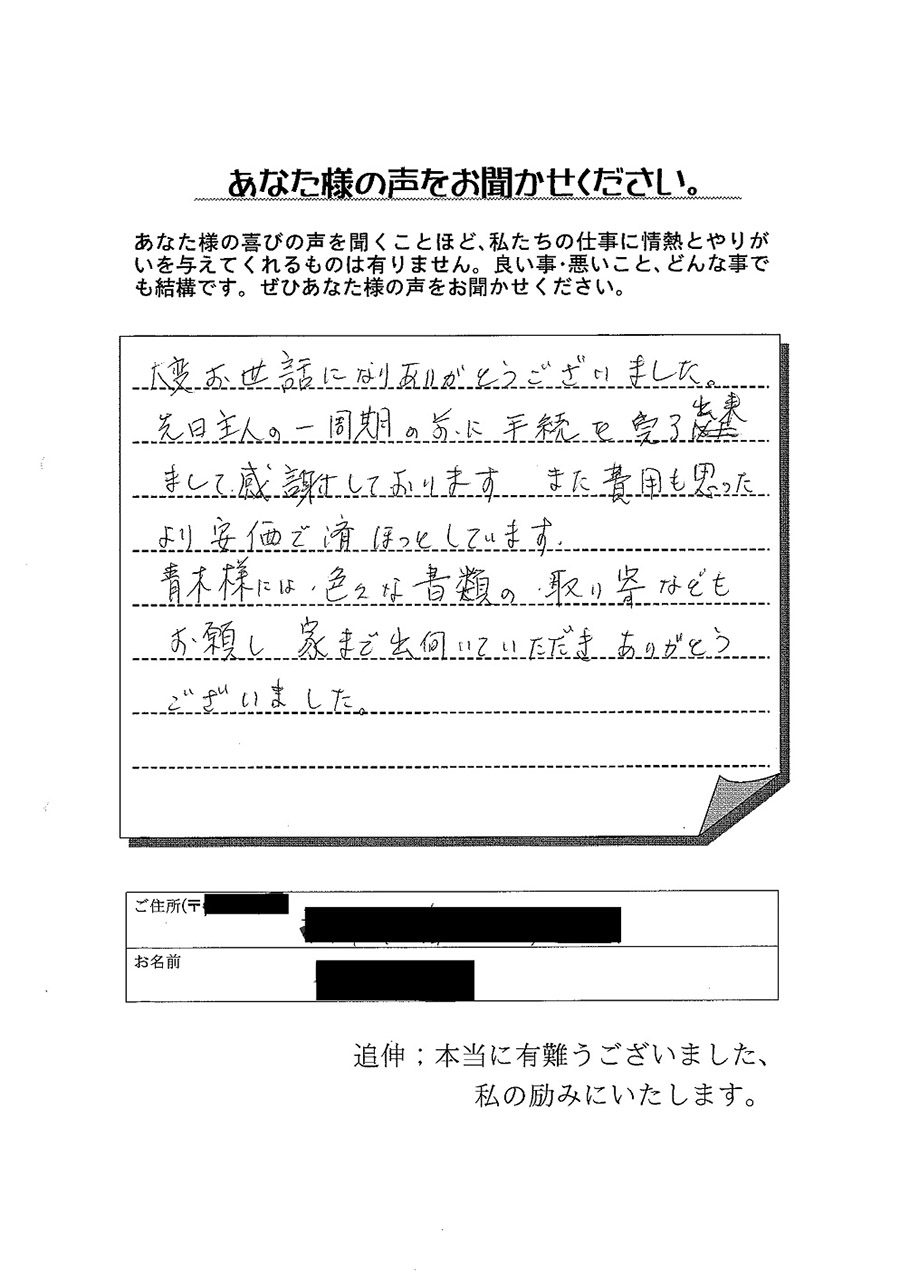 あなた様の声をお聞かせください。
あなた様の喜びの声を聞くことほど、私たちの仕事に情熱とやりが
いを与えてくれるものは有りません。良い事・悪いこと、どんな事で
も結構です。ぜひあなた様の声をお聞かせください。
大変お世話になりありがとうございました。
先日主人の一周期の前に手続を完了出来
まして感謝しております また費用も思った
より安価で済ほっとしています.
青木様には、色々な書類の取り寄なども
お願し 家まで出伺いていただき ありがとう
ございました。
ご住所(〒
お名前
追伸；本当に有難うございました、
私の励みにいたします。